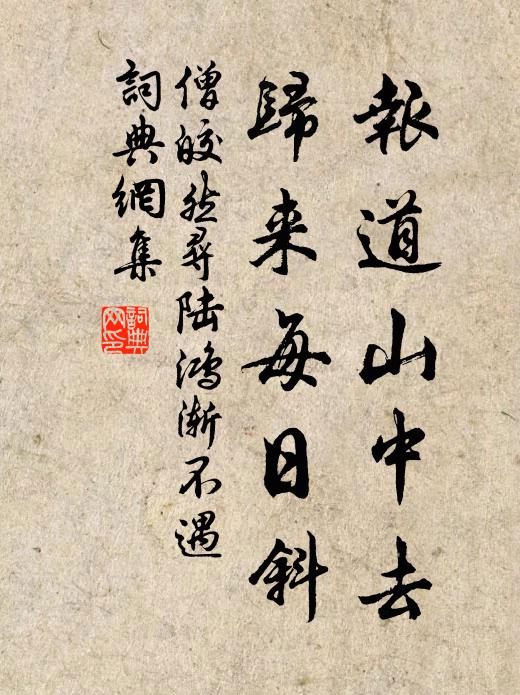 報道山中去
歸来每日斜
僧皎然尋陆鴻漸不遇
詞典網集
詞典
网印